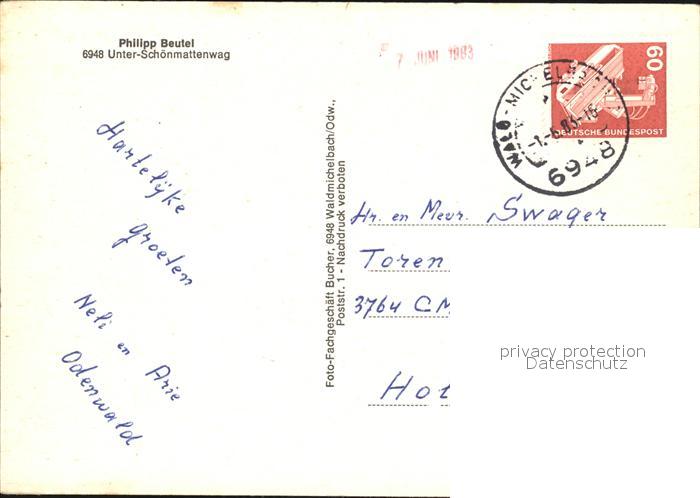 Philipp Beutel
6948 Unter-Schönmattenwag
7 JUNI 1983
60
DEUTSCHE BUNDESPOST
WALD-MICHELB
-1.-6.83.-16
6948
Hartelijke
groeten
Neli en Arie
Odenwald
Foto-Fachgeschäft Bucher, 6948 Waldmichelbach/Odw.,
Poststr. 1 - Nachdruck verboten
Hr. en Mevr. Swager
Toren
3764 CM
Hol
privacy protection
Datenschutz